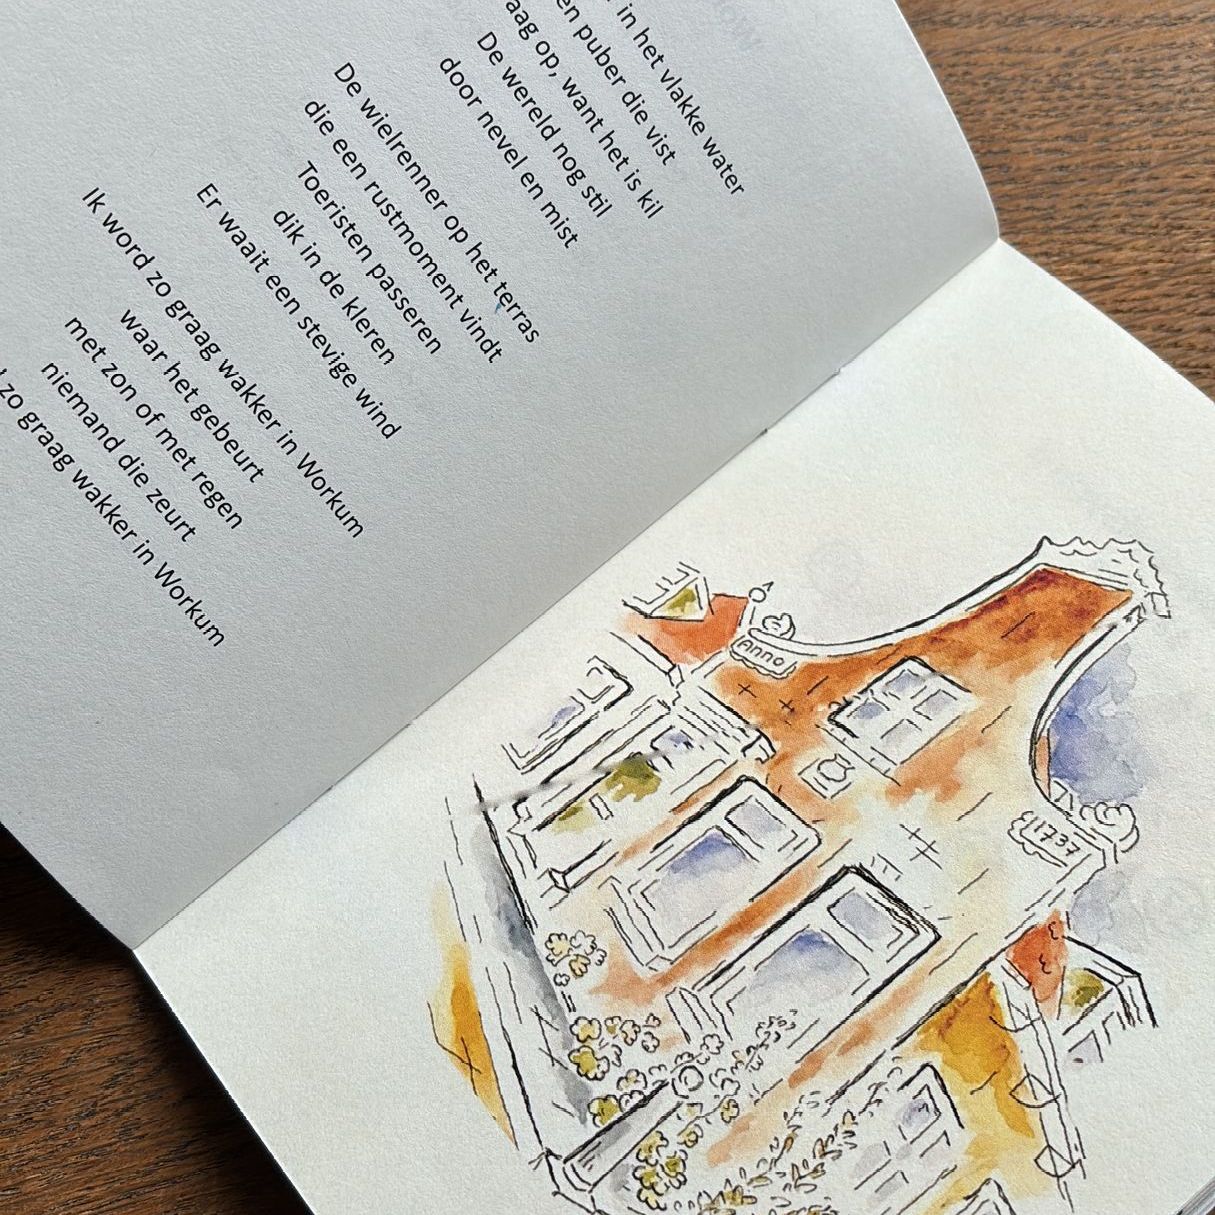 in het vlakke water
puber die vist
op, want het is kil
De wereld nog stil
door nevel en mist
De wielrenner op het terras
die een rustmoment vindt
Toeristen passeren
dik in de kleren
Er waait een stevige wind
Ik word zo graag wakker in Workum
waar het gebeurt
met zon of met regen
niemand die zeurt
zo graag wakker in Workum
Anno
1737